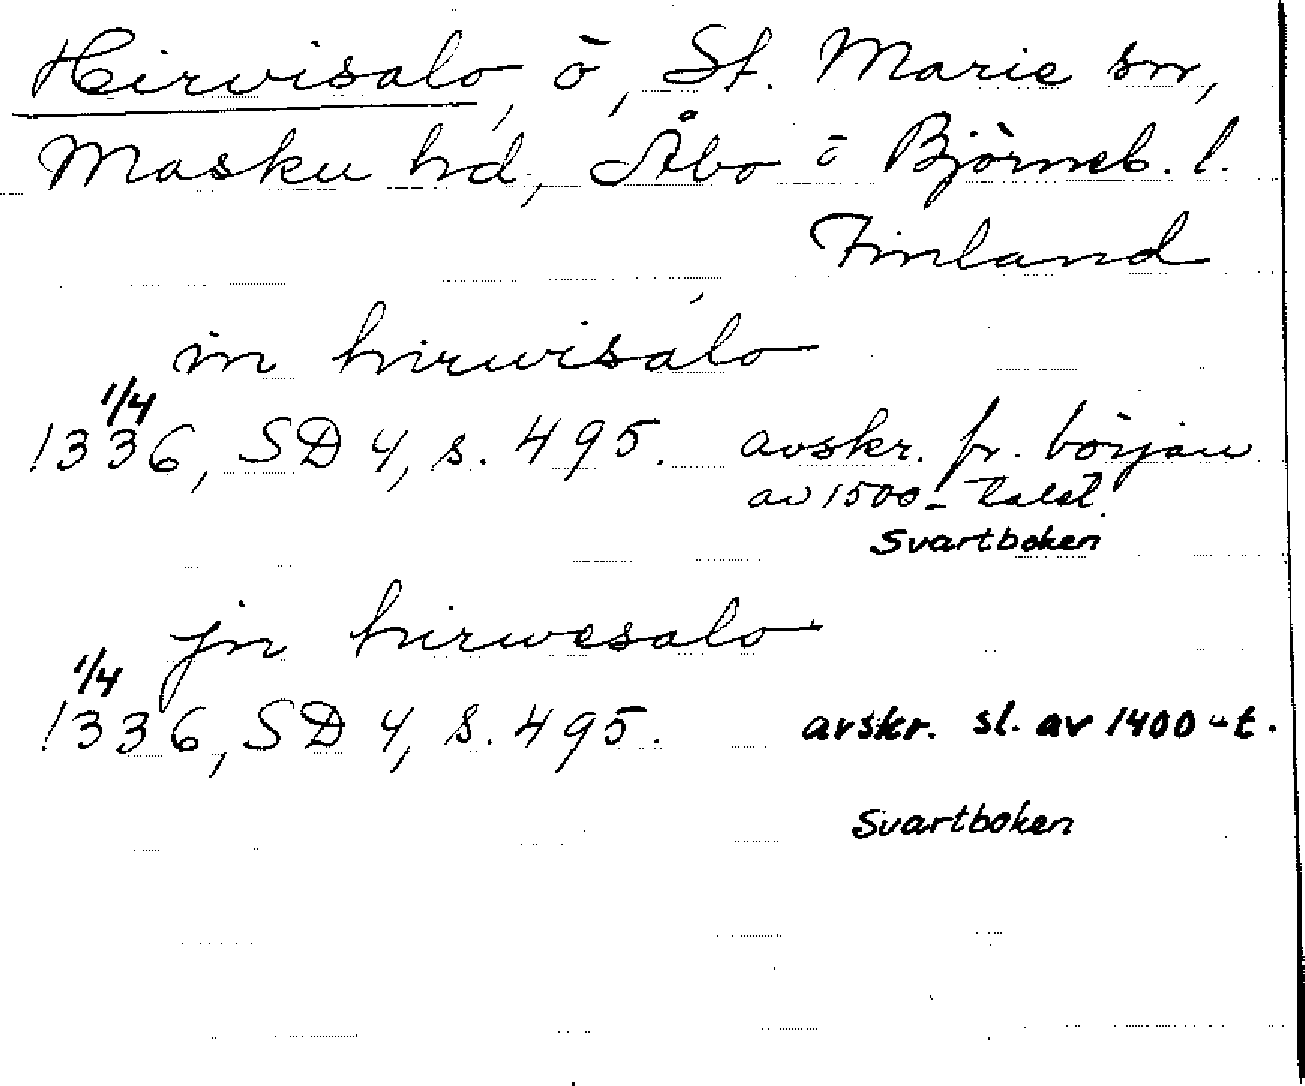 Hirvisalo, ö, St. Marie sn,
Masku hd, Åbo o Björneb. l.
Finland
in hirwisalo
1/4
1336, SD 4, s. 495. avskr. fr. början
av 1500-talet.
Svartboken
jn hirwesalo
1/4
1336, SD 4, s. 495. avskr. sl. av 1400-t.
Svartboken